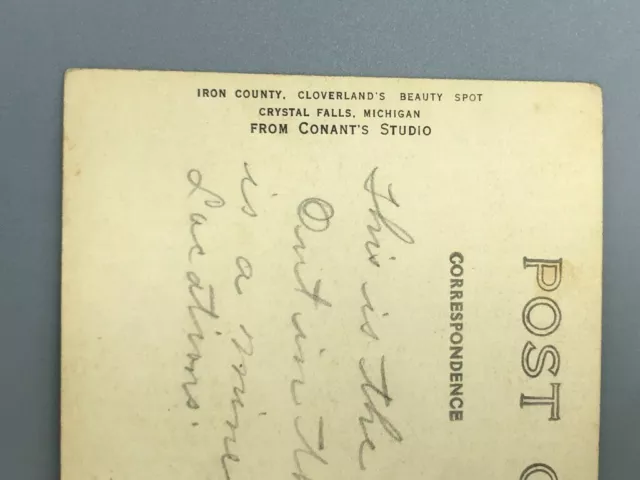 IRON COUNTY, CLOVERLAND'S BEAUTY SPOT
CRYSTAL FALLS, MICHIGAN
FROM CONANT'S STUDIO
POST
CORRESPONDENCE
This is the
Out in th
is a mine
Locations.